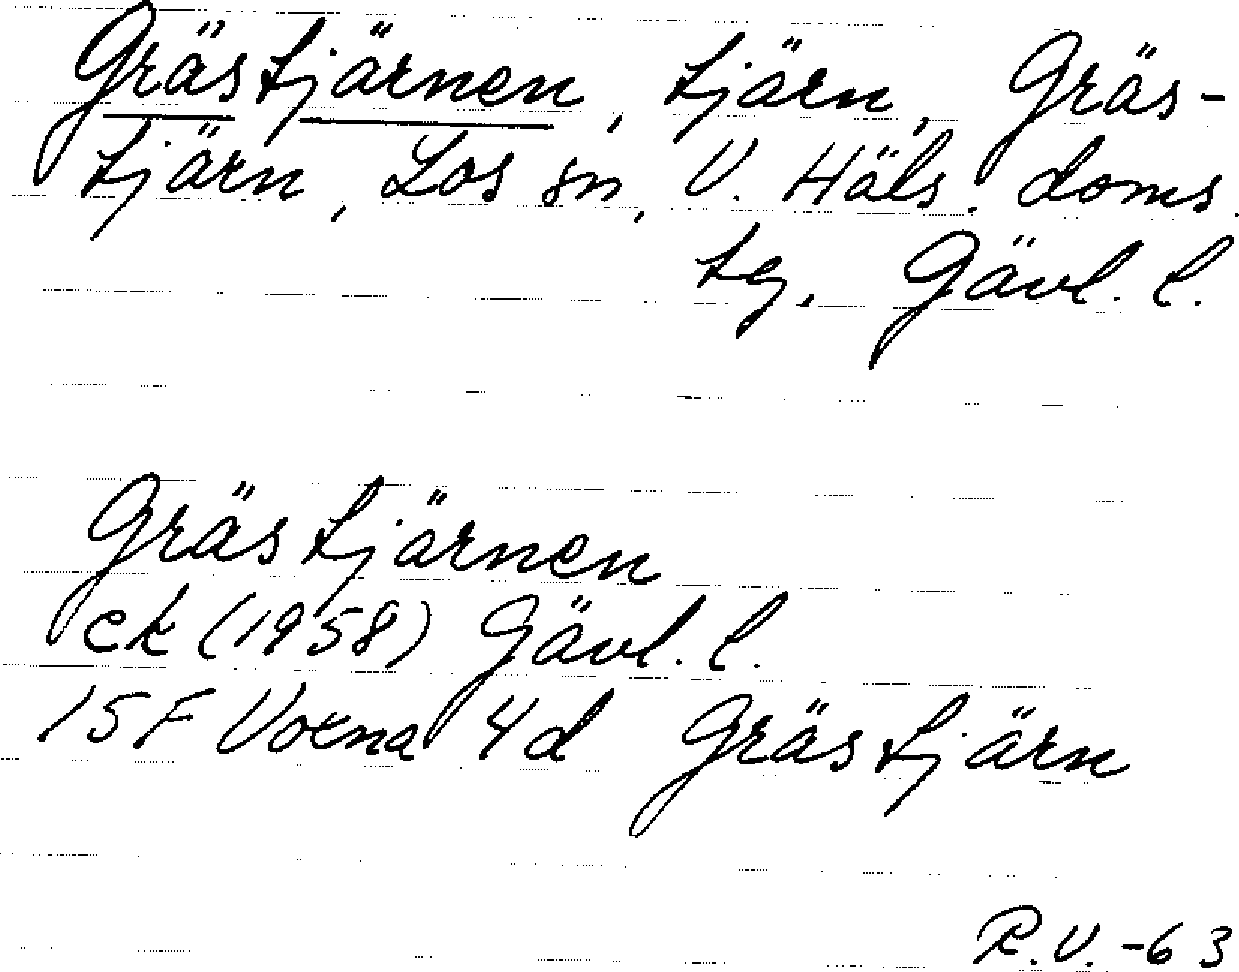 Grästjärnen, tjärn, Gräs-
tjärn, Los sn, V. Häls. doms.
tg, Gävl. l.
Grästjärnen
ek (1958) Gävl. l.
15F Voxna 4d Grästjärn
R.V. -63